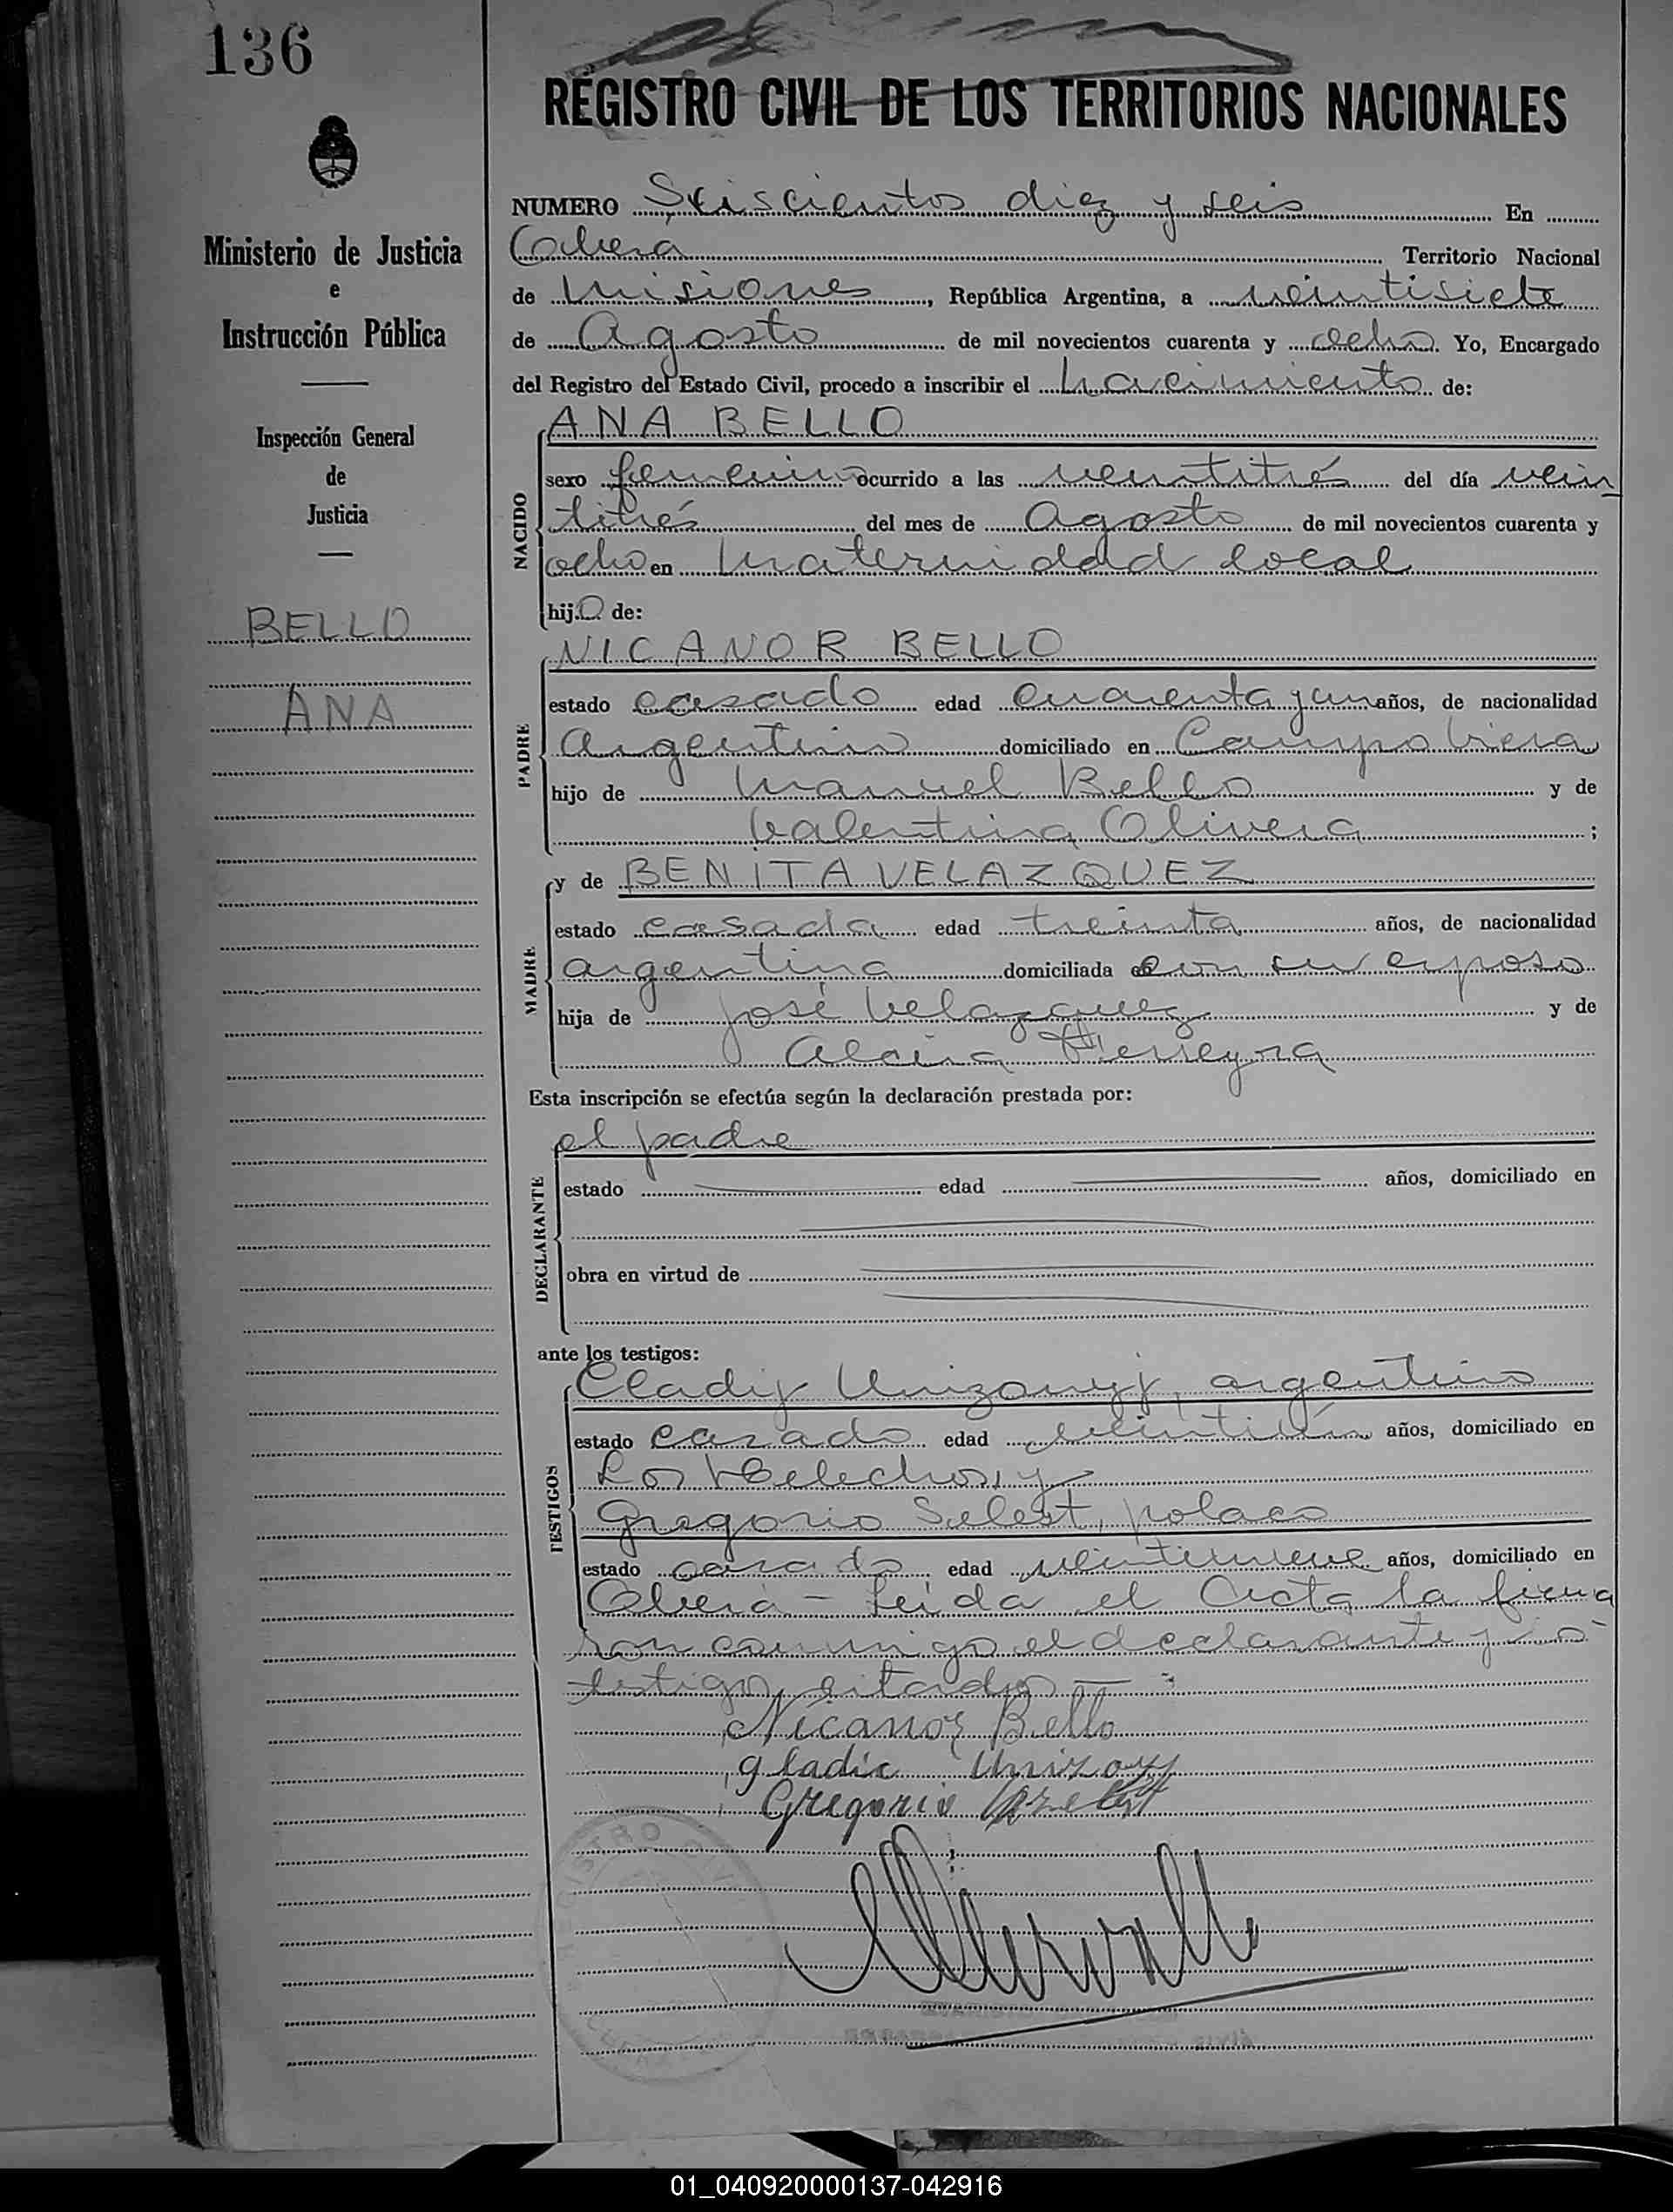 136
REGISTRO CIVIL DE LOS TERRITORIOS NACIONALES
Ministerio de Justicia
e
Instrucción Pública
Inspección General
de
Justicia
BELLO
ANA
NUMERO Seiscientos diez y seis En
Oberá Territorio Nacional
de Misiones, República Argentina, a veintisiete
de Agosto de mil novecientos cuarenta y ocho. Yo, Encargado
del Registro del Estado Civil, procedo a inscribir el nacimiento de:
ANA BELLO
NACIDO
sexo femenino ocurrido a las veintitrés del día vein
titrés del mes de Agosto de mil novecientos cuarenta y
ocho en Maternidad local
hija de:
NICANOR BELLO
PADRE
estado casado edad cuarenta y un años, de nacionalidad
argentino domiciliado en Campo Viera
hijo de Manuel Bello y de
Valentina Olivera ;
y de BENITA VELAZQUEZ
MADRE
estado casada edad treinta años, de nacionalidad
argentina domiciliada con su esposo
hija de José Velazquez y de
Alcira Ferreyra
Esta inscripción se efectúa según la declaración prestada por:
el padre
DECLARANTE
estado edad años, domiciliado en
obra en virtud de
ante los testigos:
argentino
TESTIGOS
estado casado edad años, domiciliado en
Los Helechos, y
Gregorio Selest, polaco
estado casado edad veintinueve años, domiciliado en
Oberá - Leida el Acta la firma
ron conmigo el declarante y los
testigos citados
Nicanor Bello
Gregorio
01_040920000137-042916